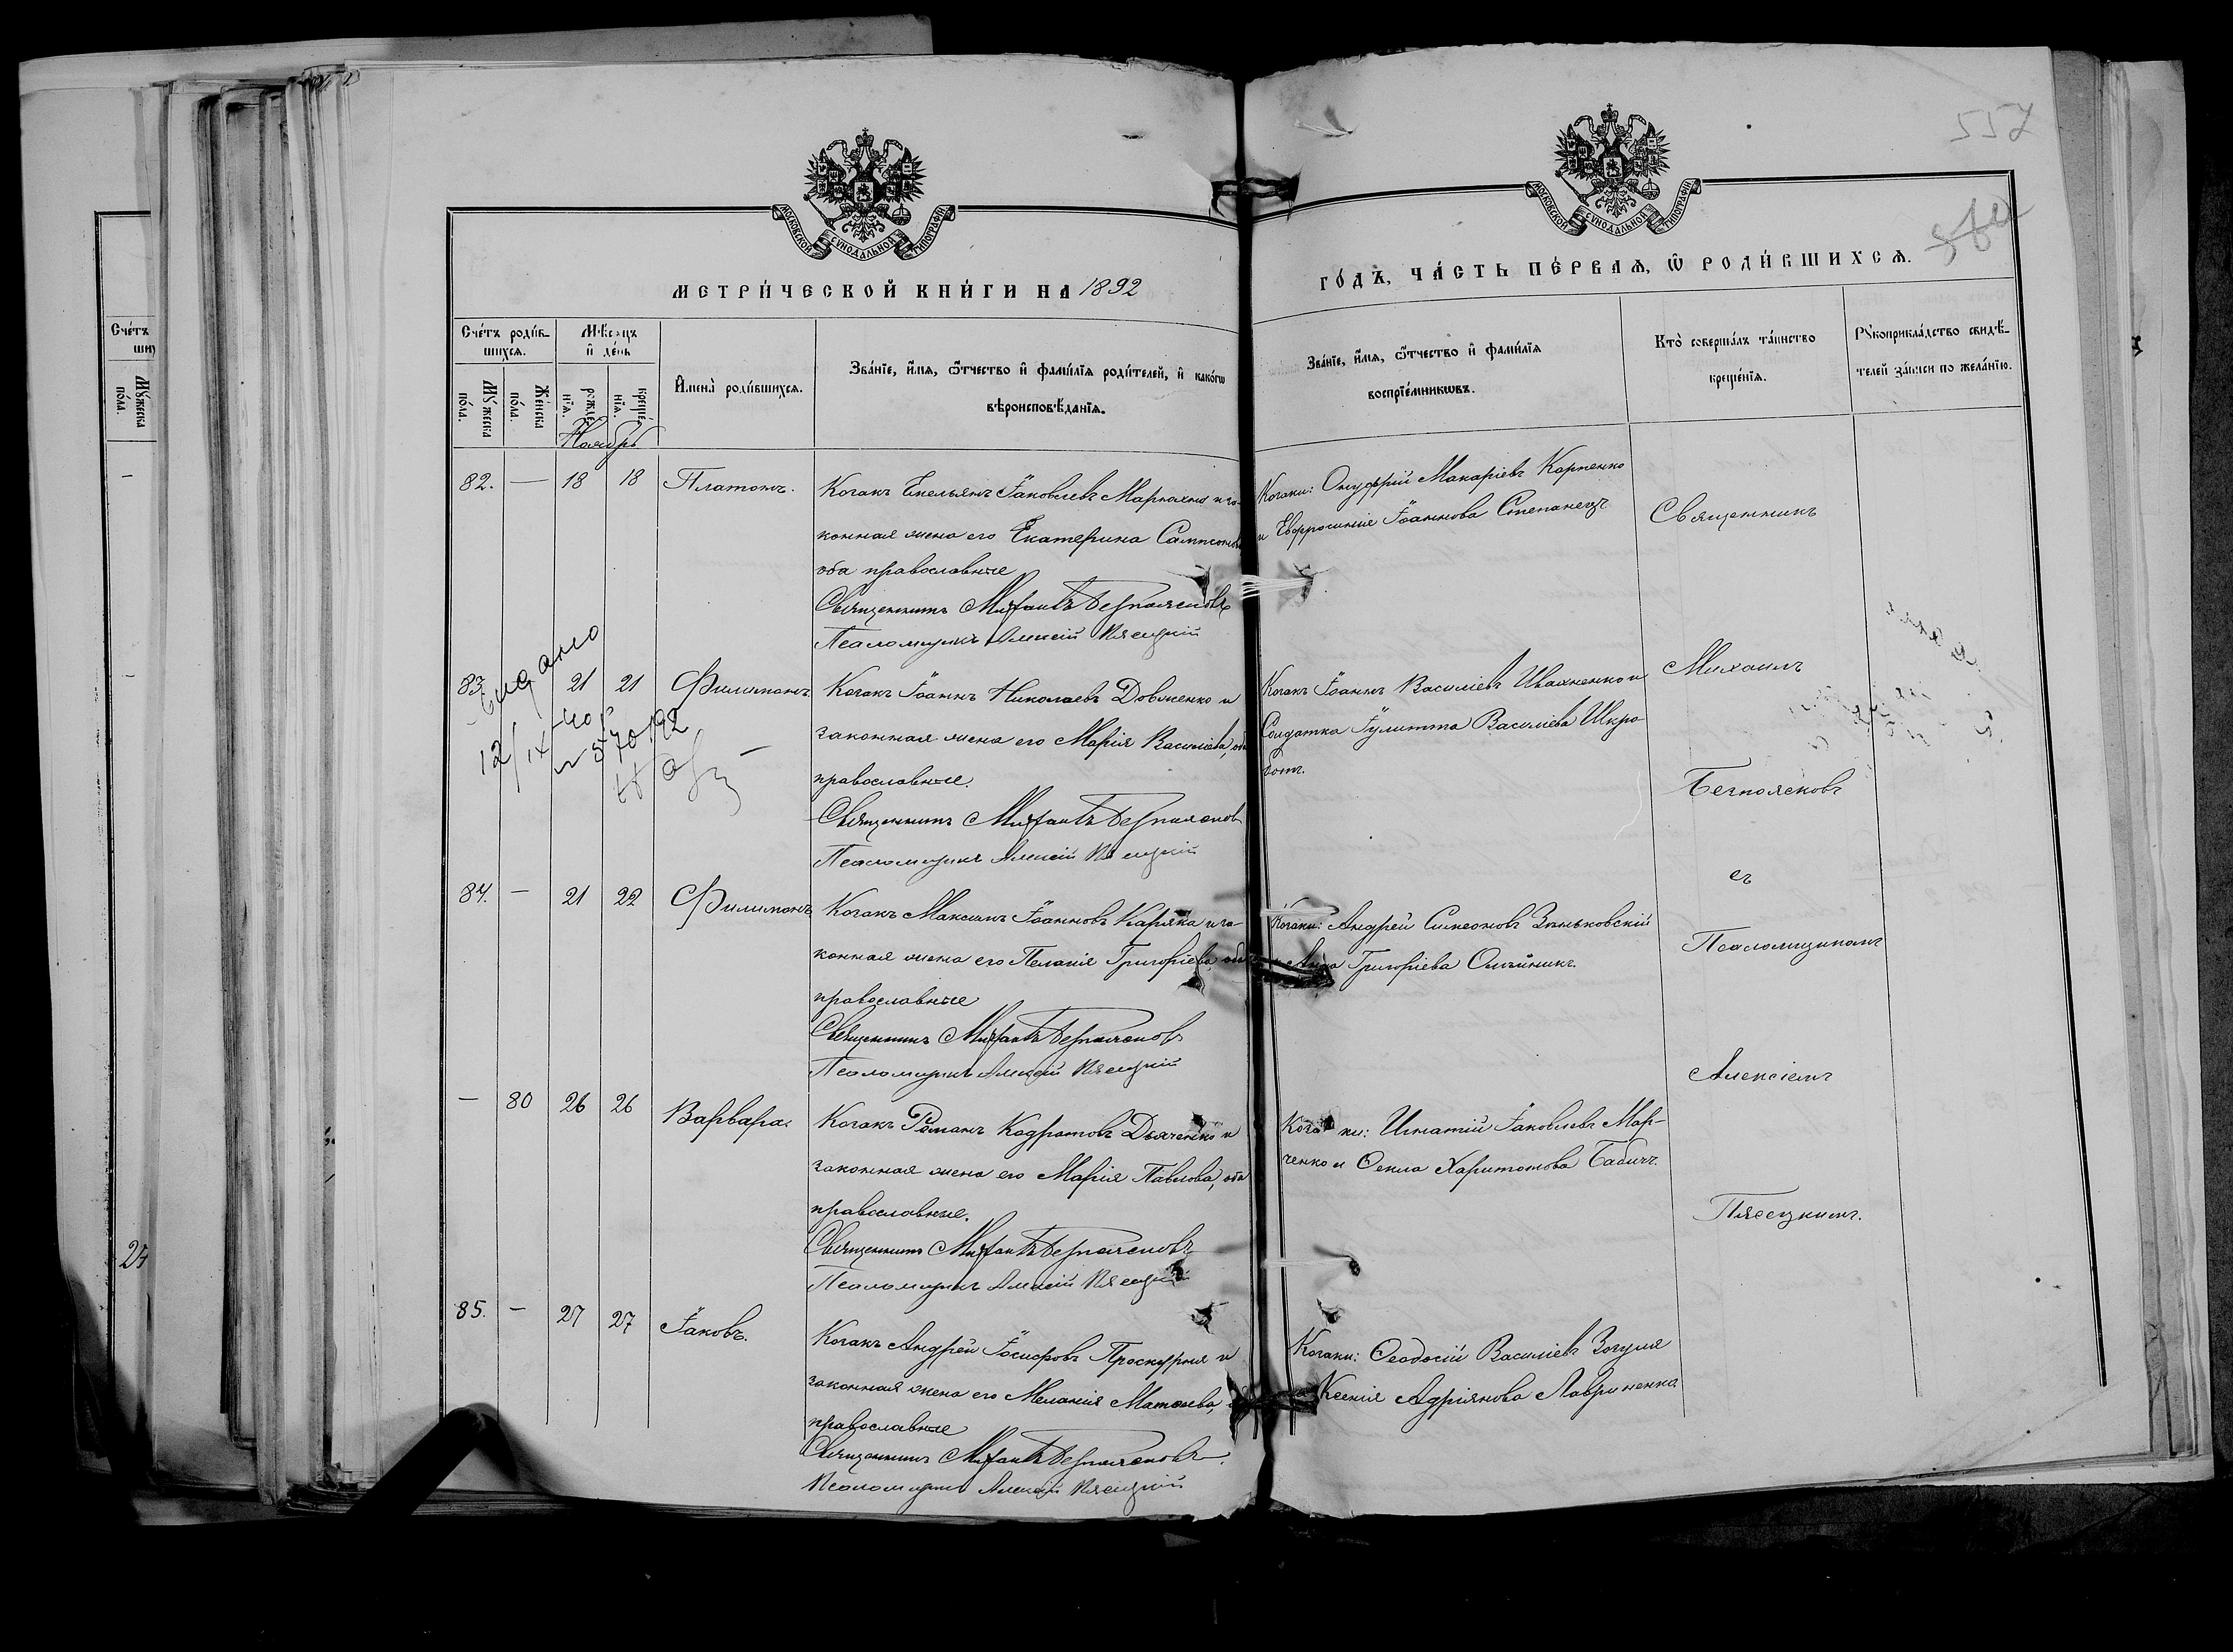 557
МОСКОВСКОЙ СѴНОДАЛЬНОЙ ТИПОГРАФІИ
МОСКОВСКОЙ СѴНОДАЛЬНОЙ ТИПОГРАФІИ
МЕТРИ́ЧЕСКОЙ КНИ́ГИ НА 1892
ГО́ДЪ, ЧА́СТЬ ПЕ́РВАѦ, Ѡ҆ РОДИ́ВШИХСѦ.
Сче́тъ роди́в-
шихсѧ.
Мѣсѧцъ
и҆ де́нь
Мꙋ́жеска
по́ла.
Же́нска
по́ла.
рожде́
нїѧ.
креще́
нїѧ.
И҆мена̀ роди́вшихсѧ.
Зва́нїе, и҆́мѧ, ѻ҆́тчество и҆ фами́лїѧ роди́телей, и҆ како́гѡ
вѣроисповѣ́данїѧ.
Зва́нїе, и҆́мѧ, ѻ҆́тчество и҆ фами́лїѧ
воспрїе́мникѡвъ.
Кто̀ соверша́лъ та́инство
креще́нїѧ.
Рꙋкоприкла́дство свидѣ́-
телей за́писи по жела́нїю.
Ноябрь
82. — 18 18 Платонъ.
Козакъ Емельянъ Іаковлевъ Марюхно и за-
конная жена его Екатерина Сампсонова
оба православные
Священникъ Михаилъ Безпоясковъ
Псаломщикъ Алексій Пясецкій
Козаки: Онуфрій Макаріевъ Карпенко
и Евфросинія Іоаннова Степанецъ
83. 21 21 Филимонъ
Видано
12/IX-40 г
№ 570/92
Козакъ Іоаннъ Николаевъ Довженко и
законная жена его Марія Василіева, оба
православные.
Священникъ Михаилъ Безпоясковъ
Псаломщикъ Алексій Пясецкій
Козакъ Іоаннъ Василіевъ Ивахненко и
Солдатка Іулитта Василіева Шкро-
ботъ.
84. — 21 22 Филимонъ
Козакъ Максимъ Іоанновъ Каряка и за-
конная жена его Пелагія Григоріева, оба
православные
Священникъ Михаилъ Безпоясковъ
Псаломщикъ Алексій Пясецкій
Козаки: Андрей Симеоновъ Зиньковскій
и Анна Григоріева Олѣйникъ.
— 80 26 26 Варвара.
Козакъ Романъ Кодратовъ Дьяченко и
законная жена его Марія Павлова, оба
православные.
Священникъ Михаилъ Безпоясковъ
Псаломщикъ Алексій Пясецкій
Козаки: Игнатій Іаковлевъ Мар-
ченко и Ѳекла Харитонова Бабичъ.
85. — 27 27 Іаковъ.
Козакъ Андрей Іосифовъ Проскурня и
законная жена его Меланія Матѳеева,
православные
Священникъ Михаилъ Безпоясковъ.
Псаломщикъ Алексій Пясецкій
Козаки: Ѳеодосій Василіевъ Зозуля
и Ксенія Адріянова Лавриненко
Священникъ
Михаилъ
Безпоясковъ
съ
Псаломщикомъ
Алексіемъ
Пясецкимъ.
Сче́тъ
ших
Мꙋ́жеска
по́ла.
24